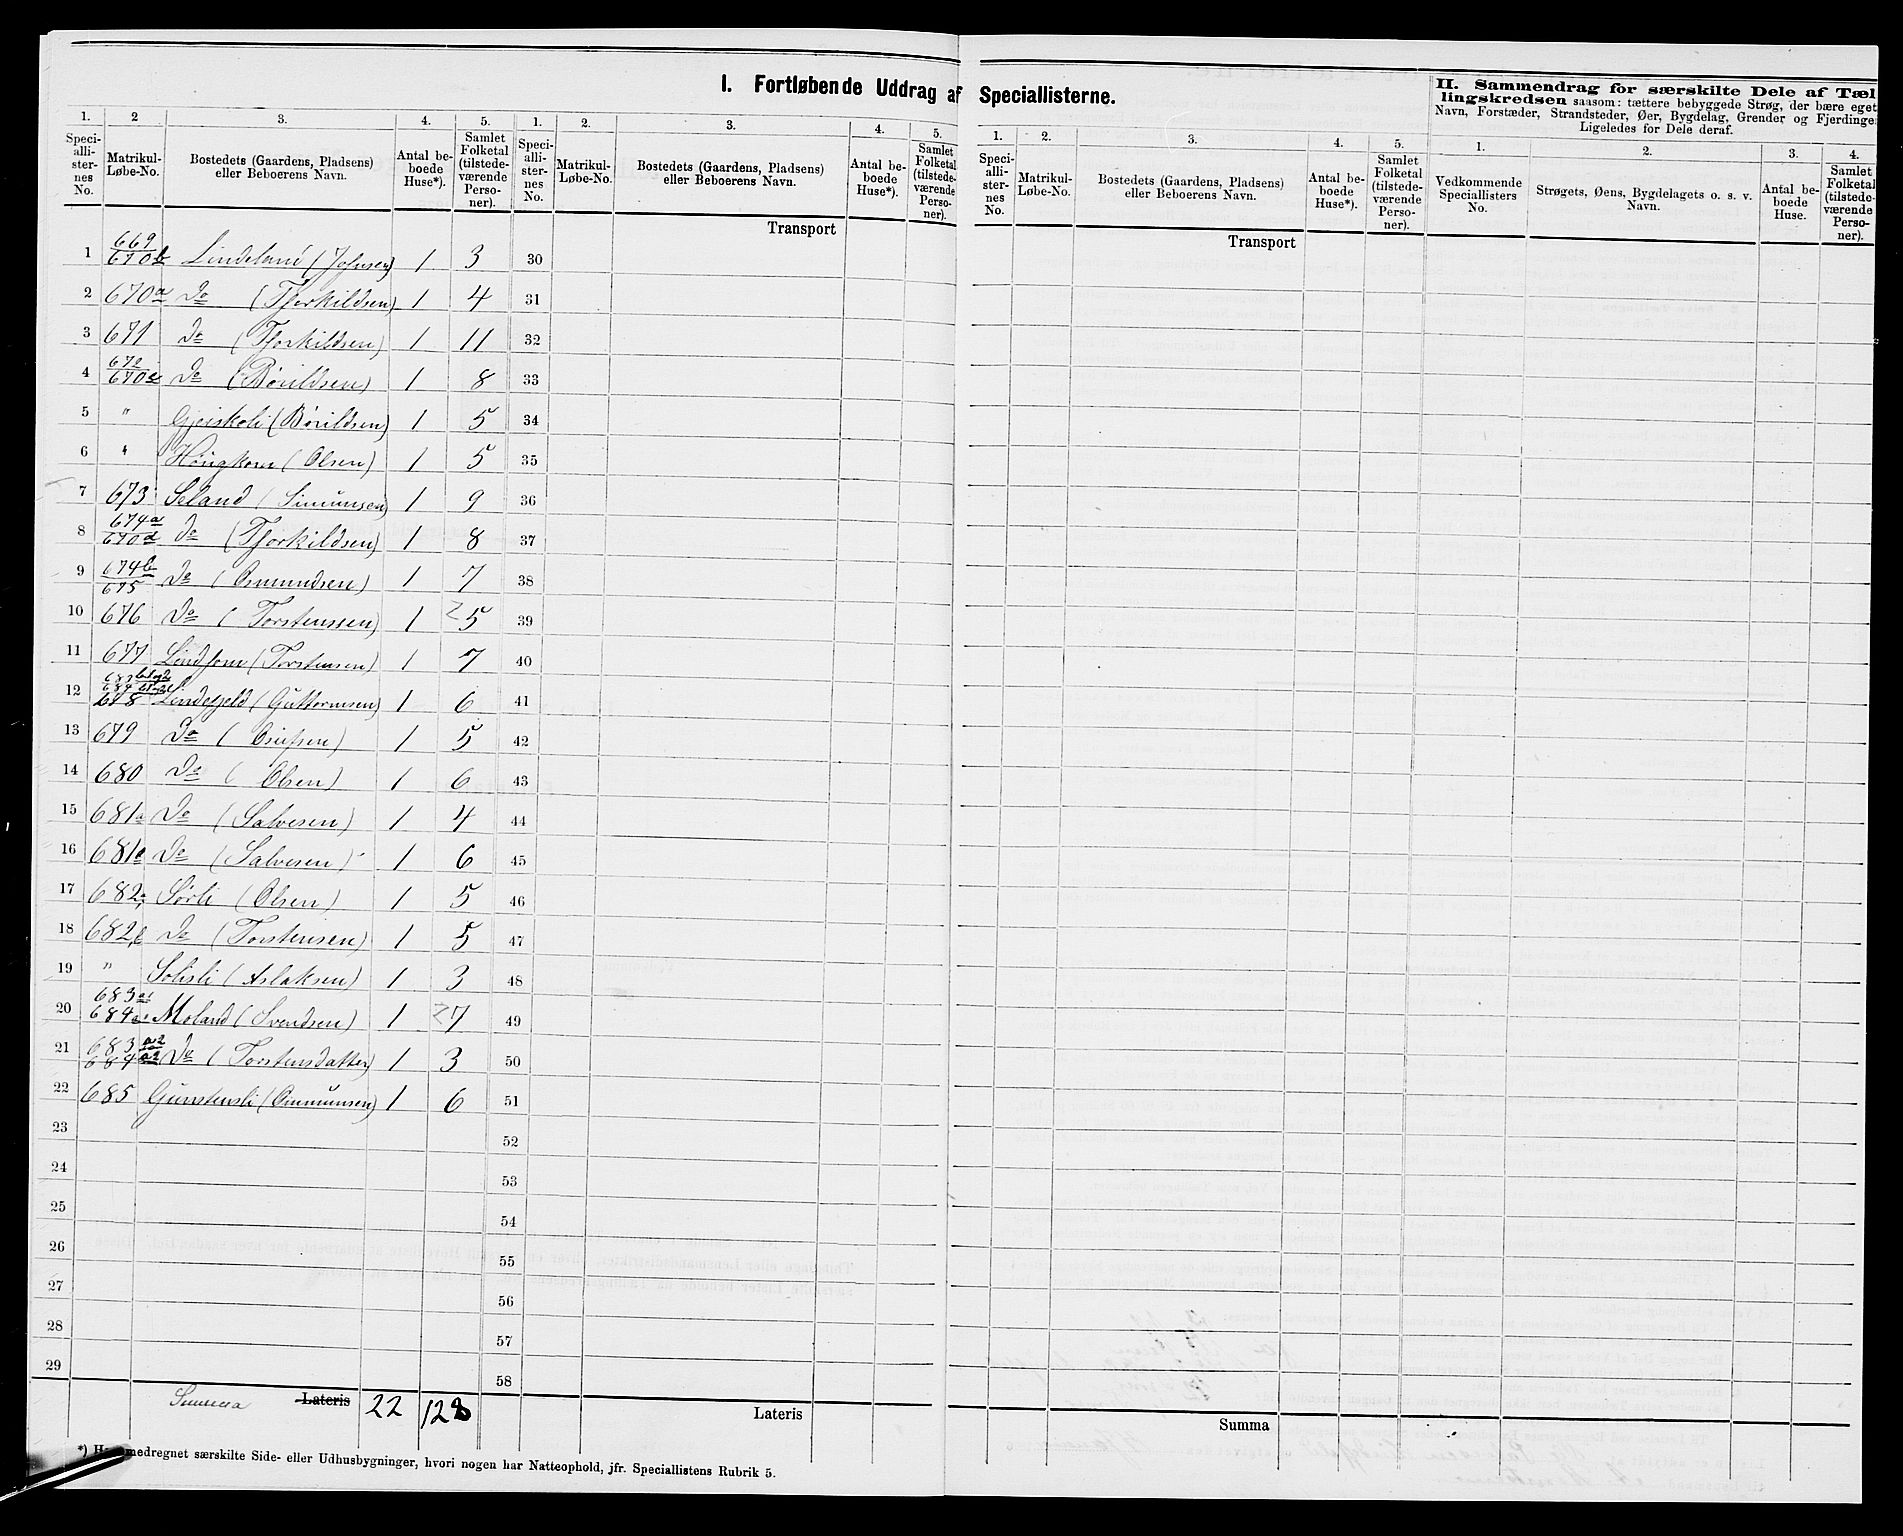 I. Fortløbende Uddrag af Speciallisterne.
II. Sammendrag for særskilte Dele af Tæl
lingskredsen saasom: tættere bebyggede Strøg, der bære eget
Navn, Forstæder, Strandsteder, Øer, Bygdelag, Grender og Fjerdinge
Ligeledes for Dele deraf.
1. 2 3. 4. 5. 1. 2. 3. 4. 5. 1. 2. 3. 4. 5. 1. 2. 3. 4.
Speci-alli-ster-nes No. Matrikul-Løbe-No. Bostedets (Gaardens, Pladsens) eller Beboerens Navn. Antal be-boede Huse*). Samlet Folketal (tilstede-værende Perso-ner).
Speci-alli-ster-nes No. Matrikul-Løbe-No. Bostedets (Gaardens, Pladsens) eller Beboerens Navn. Antal be-boede Huse*). Samlet Folketal (tilstede-værende Perso-ner).
Speci-alli-ster-nes No. Matrikul-Løbe-No. Bostedets (Gaardens, Pladsens) eller Beboerens Navn. Antal be-boede Huse*). Samlet Folketal (tilstede-værende Perso-ner).
Vedkommende Speciallisters No. Strøgets, Øens, Bygdelagets o. s. v. Navn. Antal be-boede Huse. Samlet Folketal (tilstede-værende Perso-ner).
Transport Transport
1 669/670b Lindeland (Johnsen) 1 3 30
2 670a Do (Tjorkildsen) 1 4 31
3 671 do (Tjorkildsen) 1 11 32
4 672/670c Do (Børildsen) 1 8 33
5 " Gjeiskeli (Børildsen) 1 5 34
6 " (Olsen) 1 5 35
7 673 Seland (Simunsen) 1 9 36
8 674a/670d do (Tjorkildsen) 1 8 37
9 674b/675 Do (Osmundsen) 1 7 38
10 676 Do (Torstenssen) 1 5 39
11 677 (Torstensen) 1 7 40
12 678 Lindefjeld (Guttormsen) 1 6 41
13 679 Do 1 5 42
14 680 Do (Olsen) 1 6 43
15 681a Do (Salvesen) 1 4 44
16 681b Do (Salvesen) 1 6 45
17 682a Sørli (Olsen) 1 5 46
18 682b Do (Torstensen) 1 5 47
19 " Solisli (Aslaksen) 1 3 48
20 683a1 684a1 Moland (Svendsen) 1 7 49
21 683a2 684a2 Do (Torstensdatter) 1 3 50
22 685 Gunstensli (Ommunsen) 1 6 51
23 52
24 53
25 54
26 55
27 56
28 57
29 58
Summa Lateris 22 128 Lateris Summa
*) medregnet særskilte Side- eller Udhusbygninger, hvori nogen har Natteophold, jfr. Speciallistens Rubrik 5.